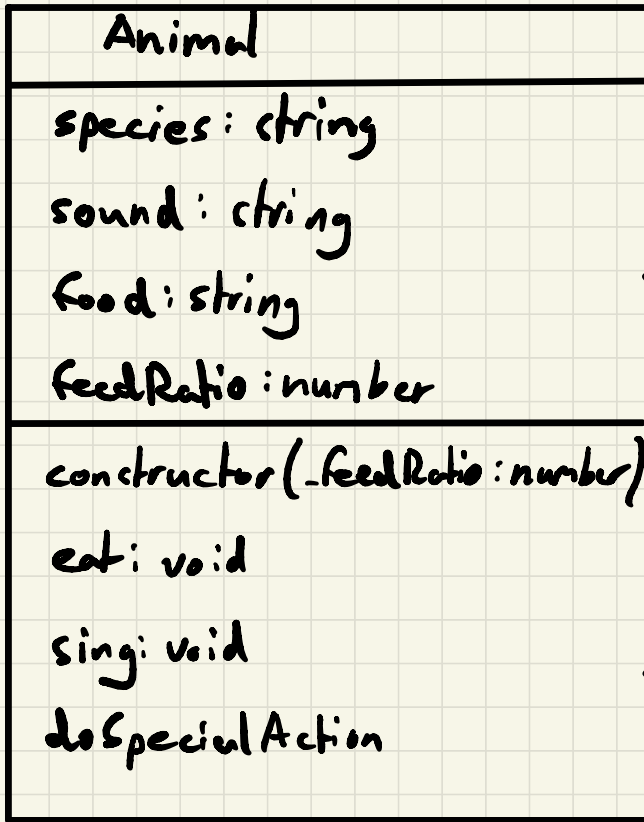 Animal
species: string
sound: string
food: string
feedRatio: number
constructor(_feedRatio: number)
eat: void
sing: void
doSpecialAction